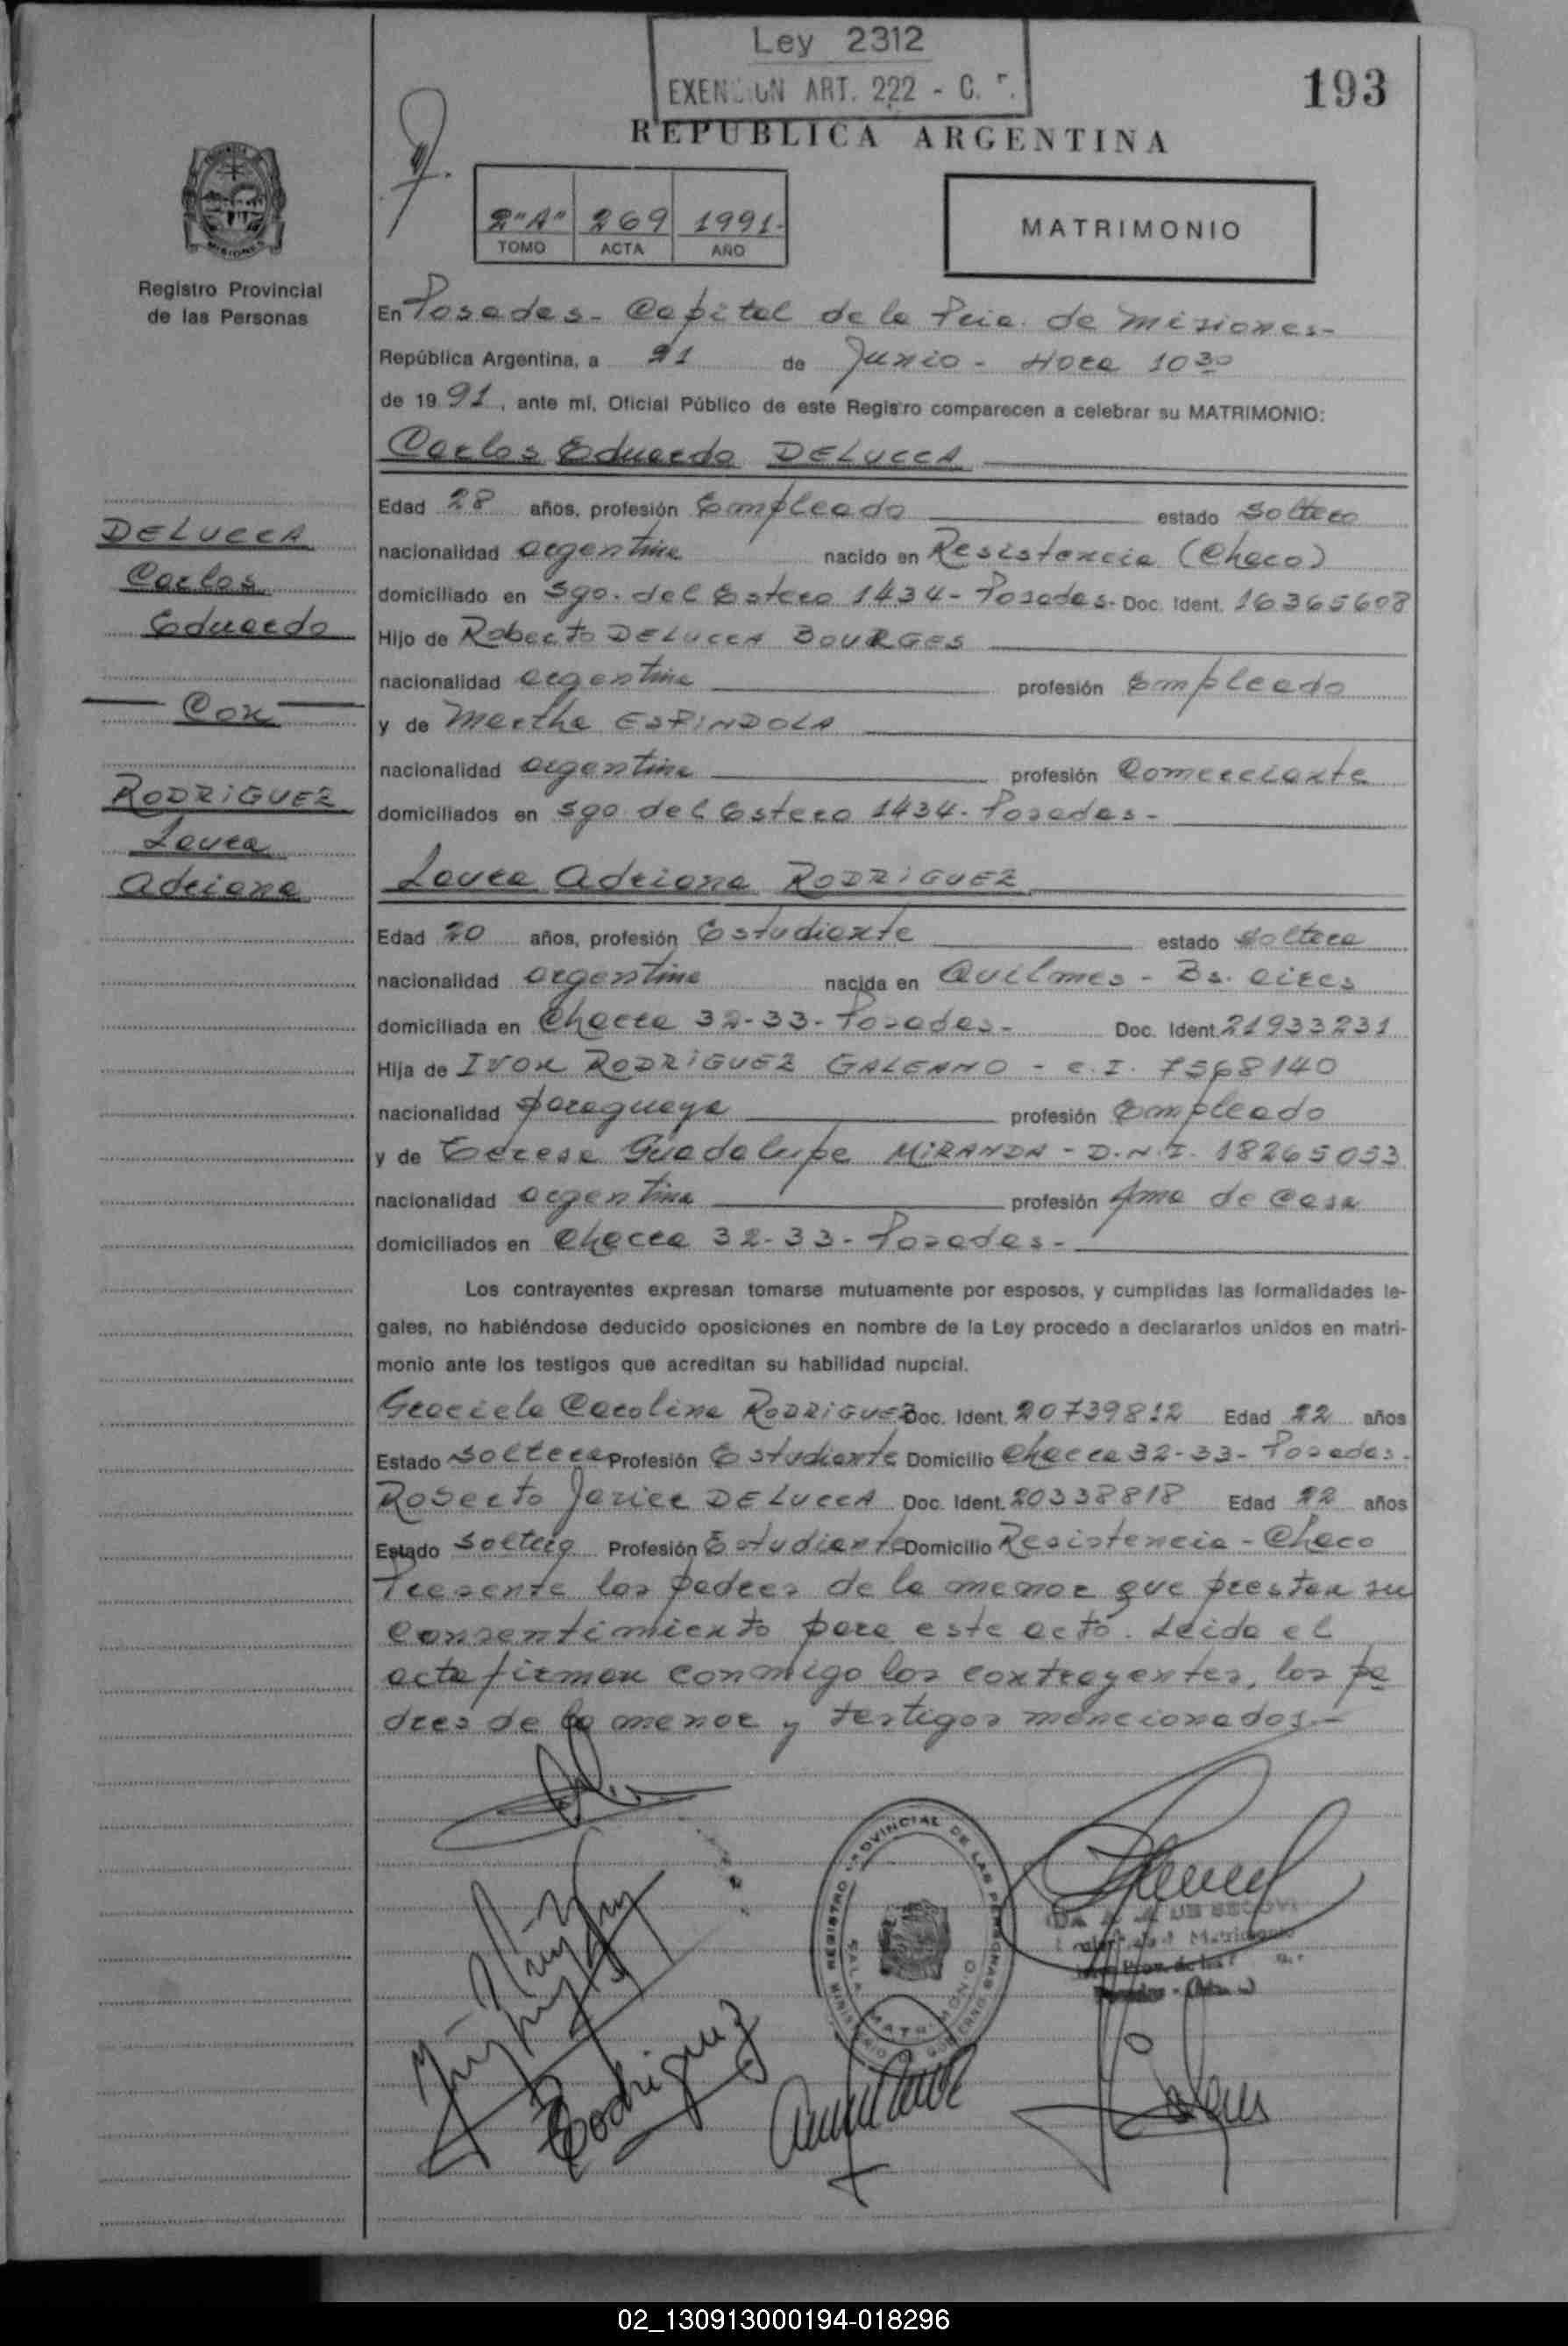 Ley 2312
EXENCION ART. 222 - C.
193
REPUBLICA ARGENTINA
2"A" 269 1991-
TOMO ACTA AÑO
MATRIMONIO
MISIONES
Registro Provincial
de las Personas
En Posadas - Capital de la Pcia. de Misiones-
República Argentina, a 21 de Junio - Hora 10 30
de 1991, ante mí, Oficial Público de este Registro comparecen a celebrar su MATRIMONIO:
Carlos Eduardo DELUCCA
Edad 28 años, profesión Empleado estado soltero
nacionalidad argentina nacido en Resistencia (Chaco)
domiciliado en Sgo. del Estero 1434 - Posadas - Doc. Ident. 16365608
Hijo de Roberto DELUCCA BOURGES
nacionalidad argentina profesión Empleado
y de Martha ESPINDOLA
nacionalidad argentina profesión Comerciante
domiciliados en Sgo del Estero 1434 - Posadas -
DELUCCA
Carlos
Eduardo
Con
RODRIGUEZ
Laura
Adriana
Laura Adriana RODRIGUEZ
Edad 20 años, profesión Estudiante estado soltera
nacionalidad argentina nacida en Quilmes - Bs. Aires
domiciliada en Chacra 32-33 - Posadas - Doc. Ident. 21933231
Hija de IVON RODRIGUEZ GALEANO - C.I. 7568140
nacionalidad paraguaya profesión Empleado
y de Teresa Guadalupe MIRANDA - D.N.I. 18265053
nacionalidad argentina profesión Ama de Casa
domiciliados en Chacra 32-33 - Posadas -
Los contrayentes expresan tomarse mutuamente por esposos, y cumplidas las formalidades le-
gales, no habiéndose deducido oposiciones en nombre de la Ley procedo a declararlos unidos en matri-
monio ante los testigos que acreditan su habilidad nupcial.
Graciela Carolina RODRIGUEZ Doc. Ident. 20739812 Edad 22 años
Estado soltera Profesión Estudiante Domicilio Chacra 32-33 - Posadas -
Roberto Javier DELUCCA Doc. Ident. 20338818 Edad 22 años
Estado soltero Profesión Estudiante Domicilio Resistencia - Chaco
Presente los padres de la menor que prestan su
consentimiento para este acto. Leida el
acta firman conmigo los contrayentes, los pa
dres de la menor y testigos mencionados.-
REGISTRO PROVINCIAL DE LAS PERSONAS
SALA MATRIMONIO
MINISTERIO DE GOBIERNO
Rodriguez
02_130913000194-018296